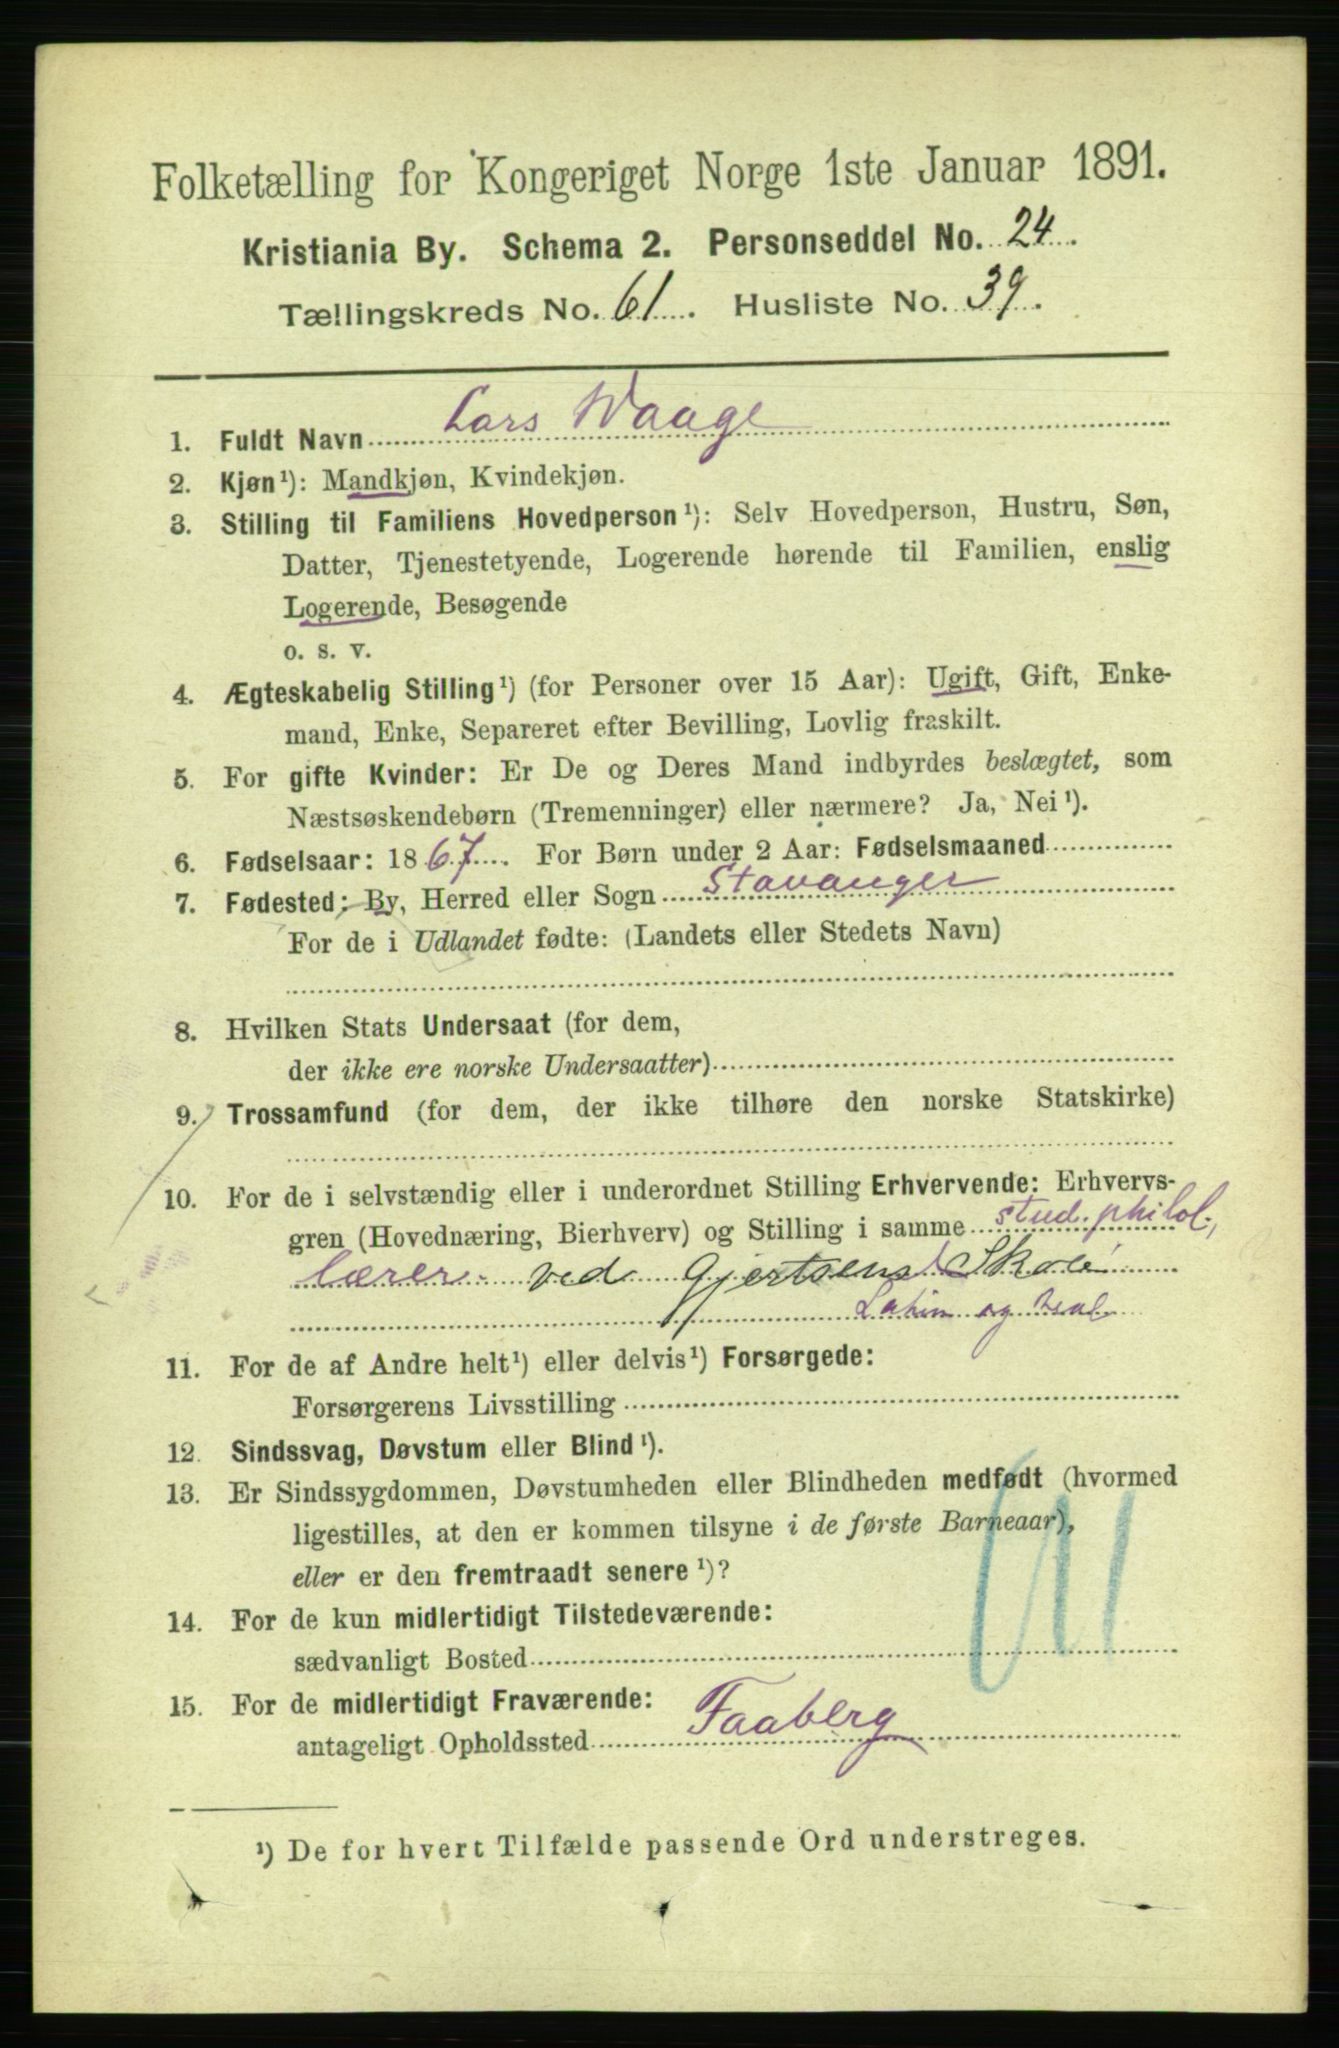 Folketælling for Kongeriget Norge 1ste Januar 1891.
Kristiania By. Schema 2. Personseddel No. 24.
Tællingskreds No. 61. Husliste No. 39.
1. Fuldt Navn Lars Waage
2. Kjøn¹): Mandkjøn, Kvindekjøn.
3. Stilling til Familiens Hovedperson¹): Selv Hovedperson, Hustru, Søn,
Datter, Tjenestetyende, Logerende hørende til Familien, enslig
Logerende, Besøgende
o. s. v.
4. Ægteskabelig Stilling¹) (for Personer over 15 Aar): Ugift, Gift, Enke-
mand, Enke, Separeret efter Bevilling, Lovlig fraskilt.
5. For gifte Kvinder: Er De og Deres Mand indbyrdes beslægtet, som
Næstsøskendebørn (Tremenninger) eller nærmere? Ja, Nei¹).
6. Fødselsaar: 1867. For Børn under 2 Aar: Fødselsmaaned
7. Fødested: By, Herred eller Sogn Stavanger
For de i Udlandet fødte: (Landets eller Stedets Navn)
8. Hvilken Stats Undersaat (for dem,
der ikke ere norske Undersaatter)
9. Trossamfund (for dem, der ikke tilhøre den norske Statskirke)
10. For de i selvstændig eller i underordnet Stilling Erhvervende: Erhvervs-
gren (Hovednæring, Bierhverv) og Stilling i samme stud. philol.,
lærer ved Gjertsens Skole
Latin og
11. For de af Andre helt¹) eller delvis¹) Forsørgede:
Forsørgerens Livsstilling
12. Sindssvag, Døvstum eller Blind¹).
13. Er Sindssygdommen, Døvstumheden eller Blindheden medfødt (hvormed
ligestilles, at den er kommen tilsyne i de første Barneaar),
eller er den fremtraadt senere¹)?
14. For de kun midlertidigt Tilstedeværende:
sædvanligt Bosted
15. For de midlertidigt Fraværende:
antageligt Opholdssted Faaberg
¹) De for hvert Tilfælde passende Ord understreges.